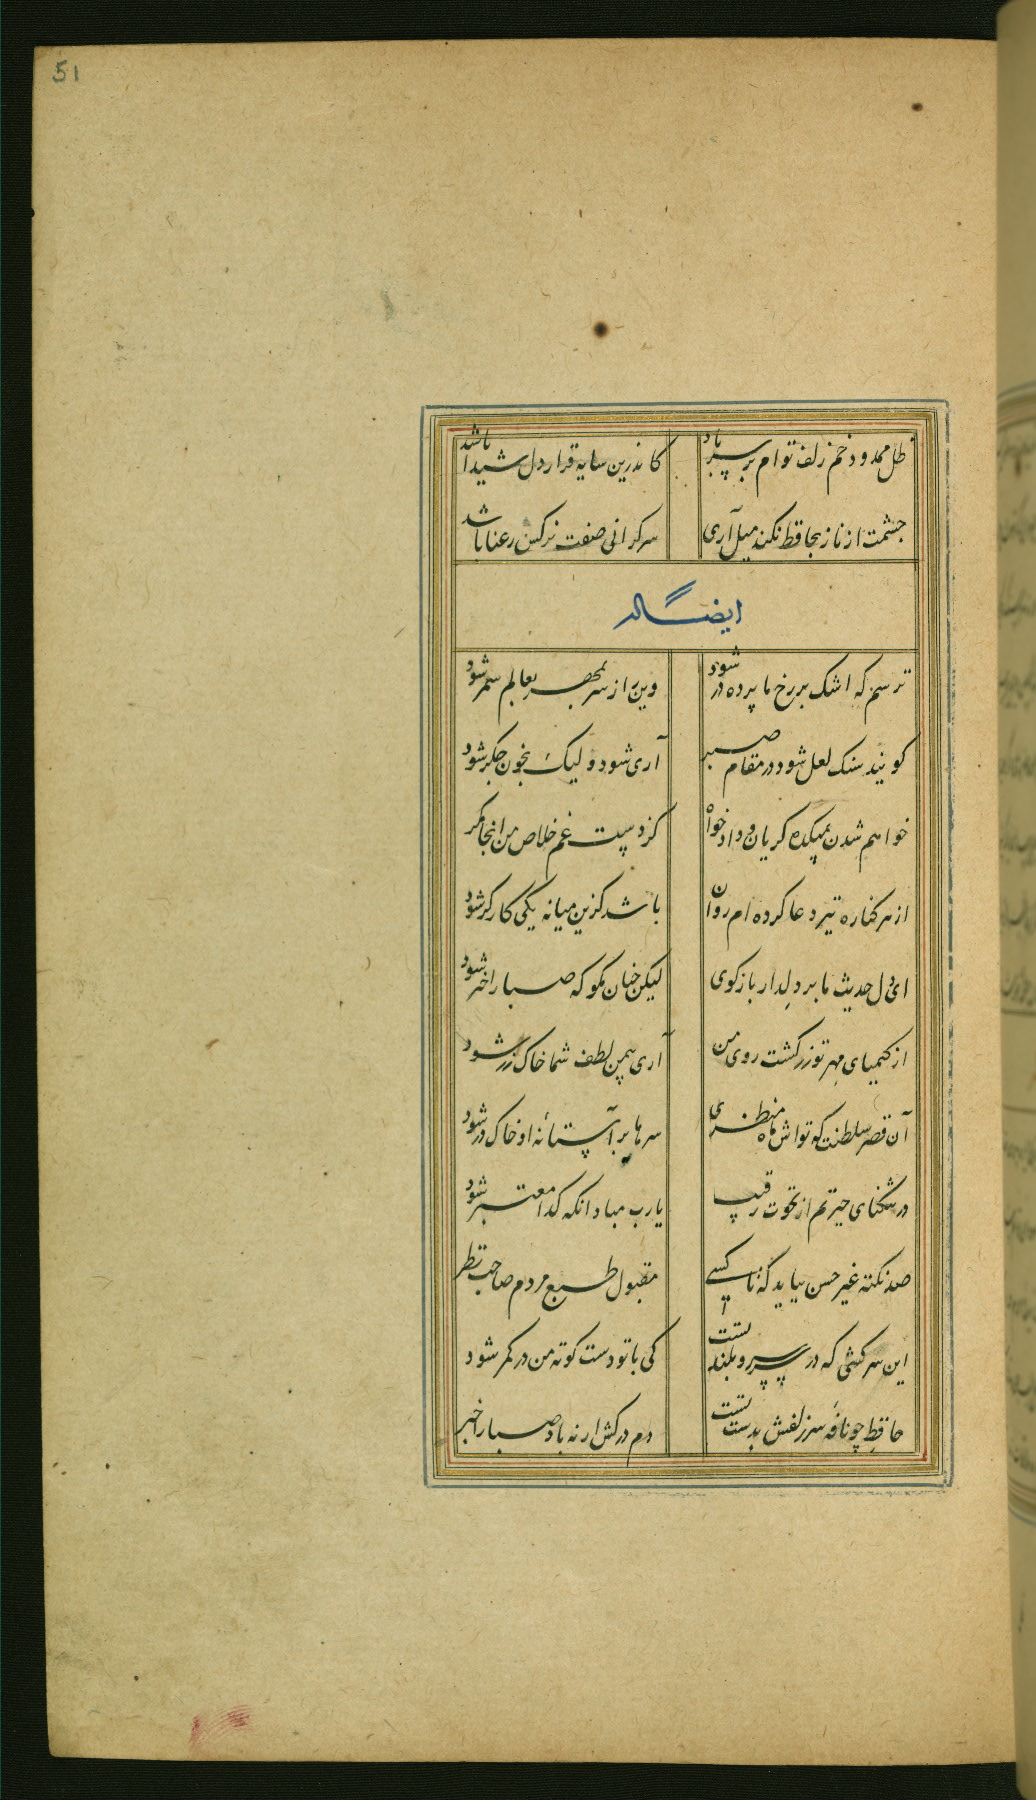 51
ظل ممدود خم زلف توام بر سر باد کاندرین سایه قرار دل شیدا باشد
چشمت از ناز بحافظ نکند میل آری سرکرانی صفت نرکس رعنا باشد
ایضاً له
ترسم که اشک بر رخ ما پرده در شود وین راز سر بمهر بعالم سمر شود
کویند سنک لعل شود در مقام صبر آری شود ولیک بخون جکر شود
خواهم شدن بمیکده کریان و داد خواه کز دست غم خلاص من انجا مکر
از هر کناره تیر دعا کرده ام روان باشد کزین میانه یکی کارکر شود
ای دل حدیث ما بر دلدار باز کوی لیکن چنان مکو که صبا را خبر شود
از کیمیای مهر تو زر کشت روی من آری بیمن لطف شما خاک زر شود
آن قصر سلطنت که تواش ماه منظری سرها بر آستانه او خاک در شود
در تنکنای حیرتم از نخوت رقیب یارب مباد انکه کدا معتبر شود
صد نکته غیر حسن بباید که تا کسی مقبول طبع مردم صاحب نظر
این سرکشی که در سرو بلند تست کی با تو دست کوته من در کمر شود
حافظ چو نافه سر زلفش بدست تست دم درکش ار نه باد صبا را خبر